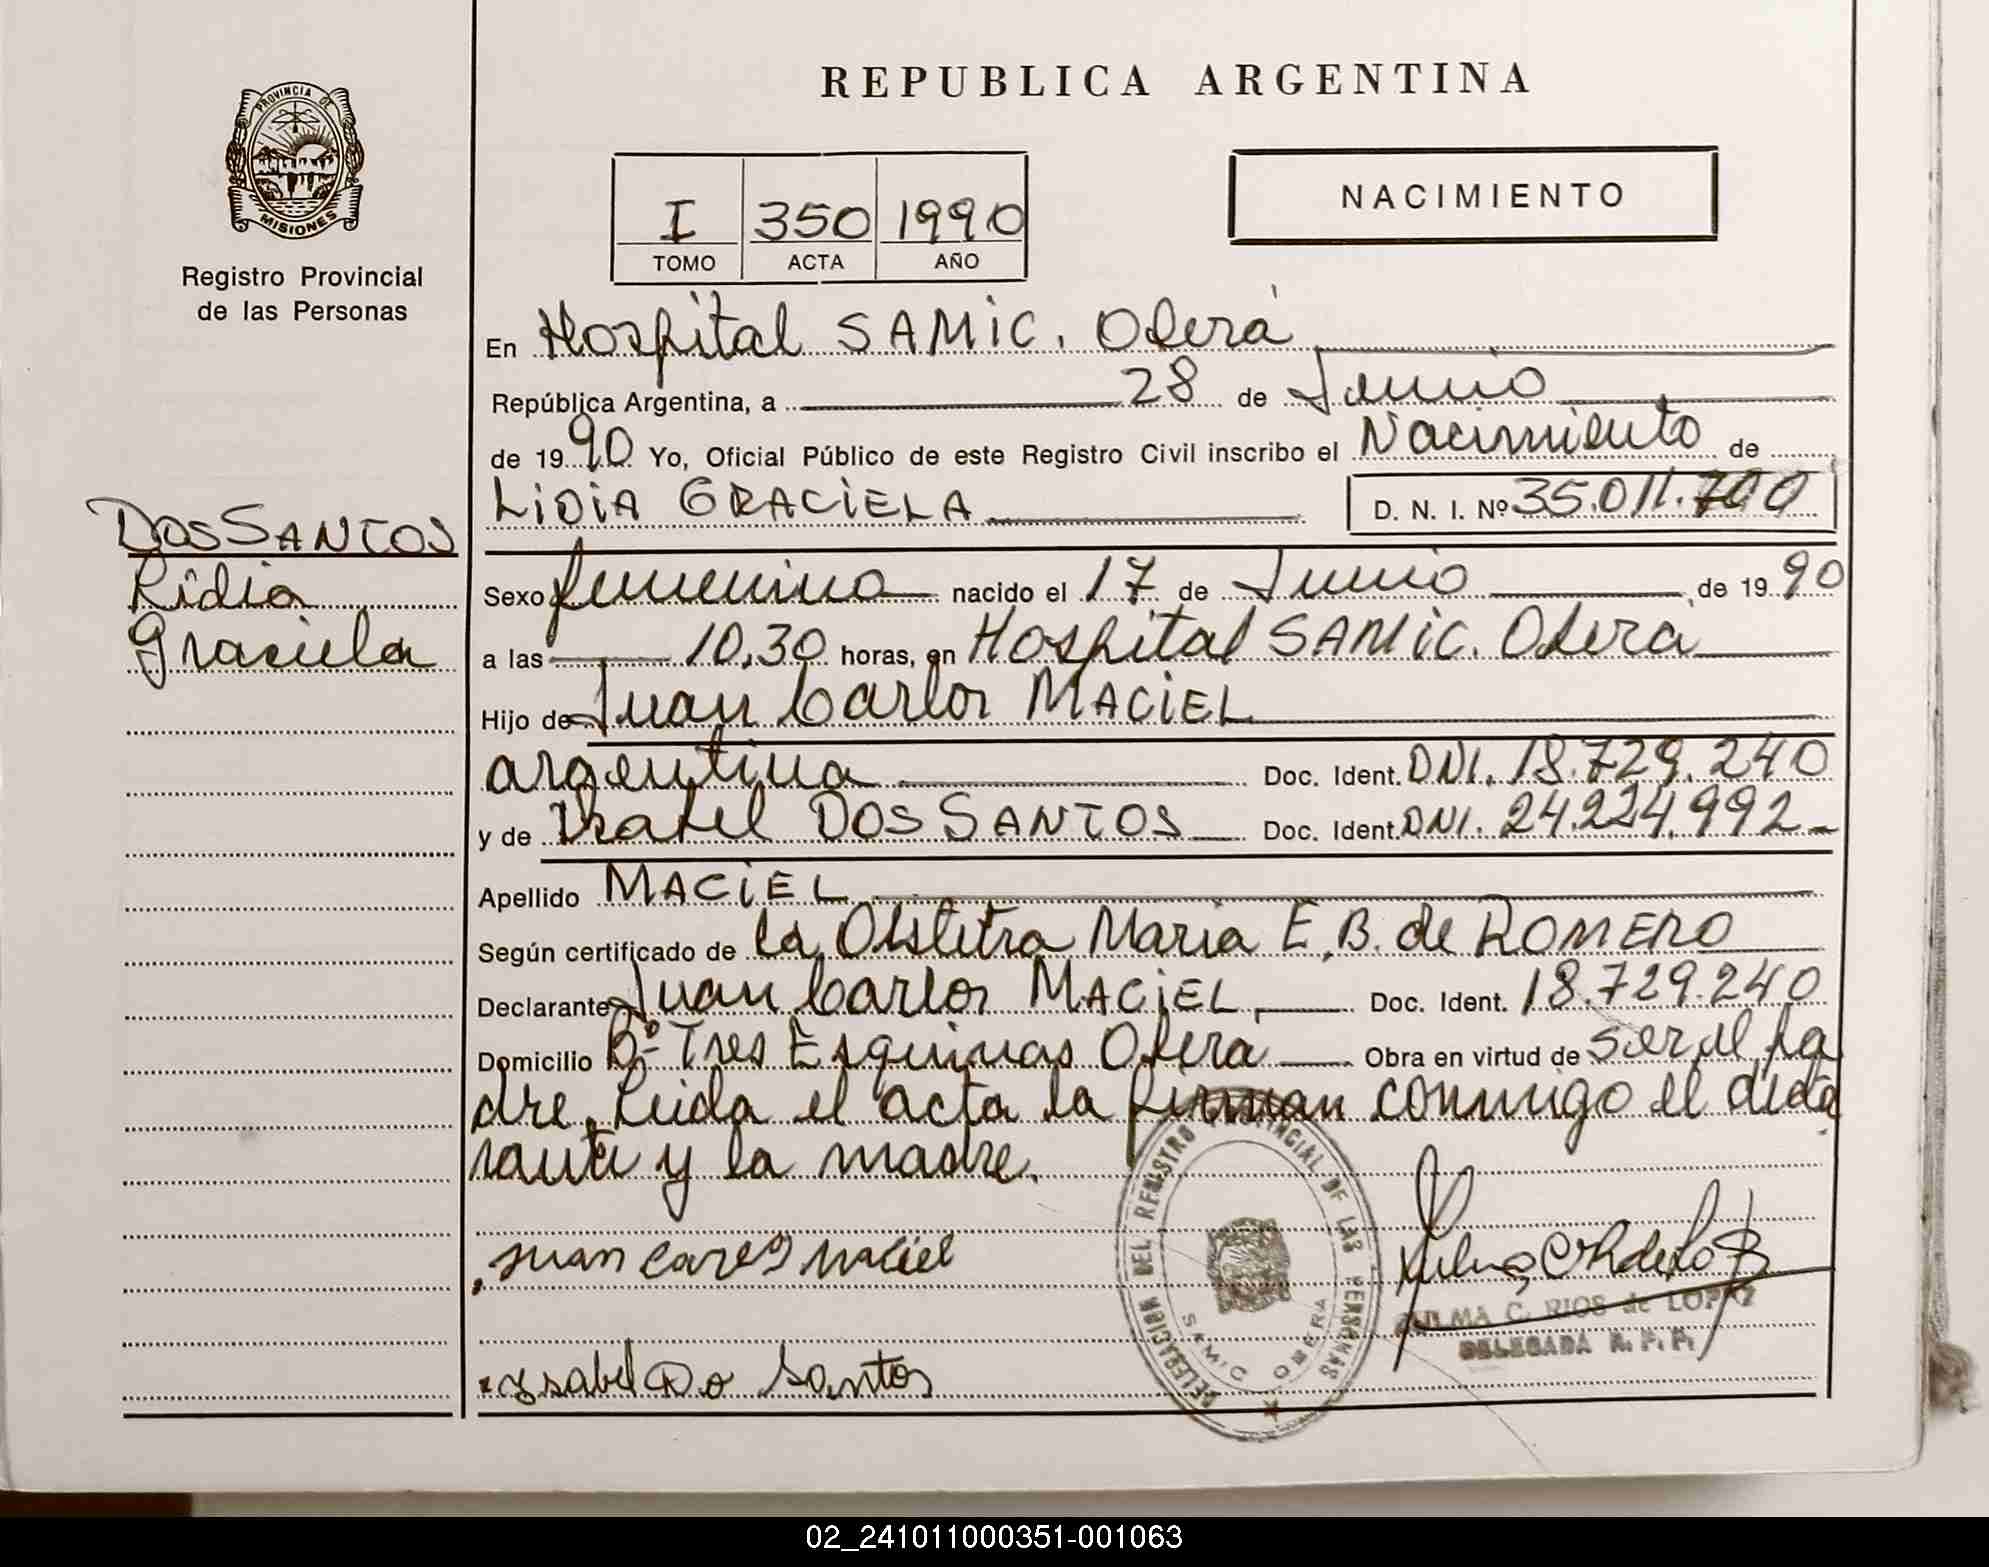 REPUBLICA ARGENTINA
PROVINCIA DE
MISIONES
Registro Provincial
de las Personas
I 350 1990
TOMO ACTA AÑO
NACIMIENTO
En Hospital SAMiC. Oberá
República Argentina, a 28 de Junio
de 1990 Yo, Oficial Público de este Registro Civil inscribo el Nacimiento de
LiDiA GRACiELA D. N. I. Nº 35.011.700
DOS SANTOS
Lidia
Graciela
Sexo femenino nacido el 17 de Junio de 1990
a las 10,30 horas, en Hospital SAMiC. Obera
Hijo de Juan Carlos MACiEL
argentina Doc. Ident. DNI. 18.729.240
y de Isabel DOS SANTOS Doc. Ident. DNI. 24.224.992
Apellido MACiEL
Según certificado de la Obstetra Maria E. B. de ROMERO
Declarante Juan Carlos MACiEL Doc. Ident. 18.729.240
Domicilio Bº Tres Esquinas Obera Obra en virtud de ser el pa
dre. Leida el acta la firman conmigo el decla
rante y la madre.
Juan Carlos Maciel
Ysabel Do Santos
DELEGACION DEL REGISTRO PROVINCIAL DE LAS PERSONAS
SAMIC OBERA
ZULMA C. RIOS de LOPEZ
DELEGADA R. P. P.
02_241011000351-001063